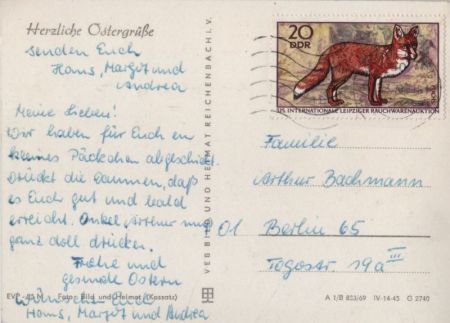 Herzliche Ostergrüße
senden Euch
Hans, Margot und
Andrea
Meine Lieben!
Wir haben für Euch en
kleines Päckchen abgeschickt.
Drückt die Daumen, daß
es Euch gut und bald
erreicht. Onkel Arthur muß
ganz doll drücken.
Frohe und
gesunde Ostern
wünschen Euch
Hans, Margot und Andrea
EVP -,25 M Foto: Bild und Heimat (Kossatz)
VEB BILD UND HEIMAT REICHENBACH I. V.
20
DDR
INTERNATIONALE LEIPZIGER RAUCHWARENAUKTION
Familie
Arthur Bachmann
01 Berlin 65
Togostr. 19a III
A 1/B 853/69 IV-14-45 G 2740